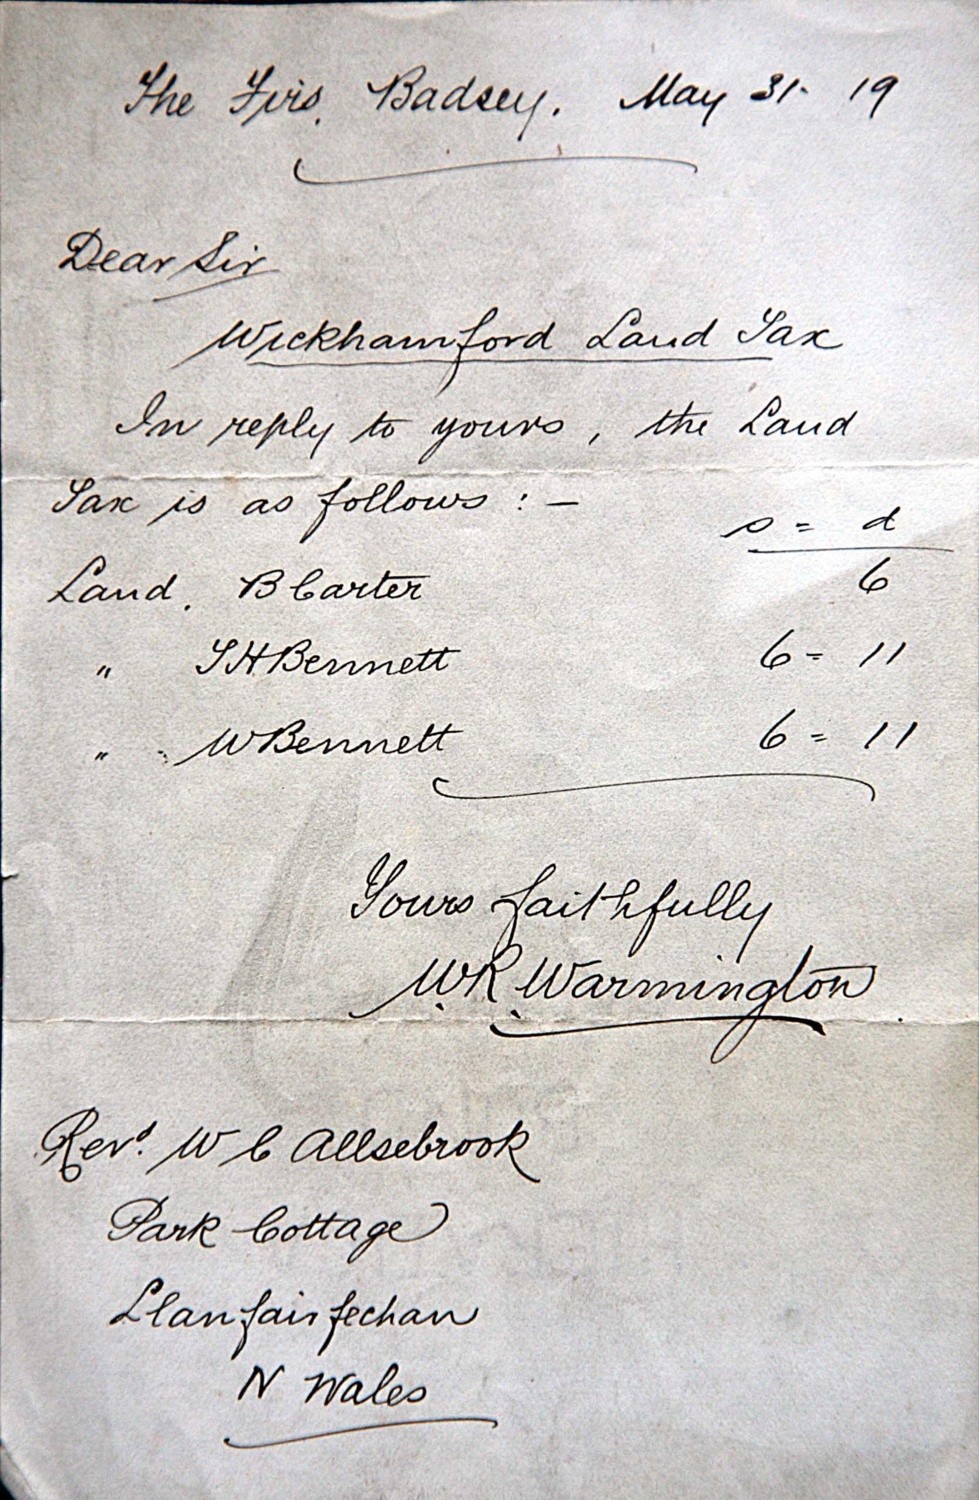 The Firs, Badsey. May 31- 19
Dear Sir
Wickhamford Land Tax
In reply to yours, the Land
Tax is as follows :-
s = d
Land. B Carter 6
" T H Bennett 6 = 11
" W Bennett 6 = 11
Yours faithfully
W. R. Warmington
Revd. W C Allsebrook
Park Cottage
Llanfairfechan
N Wales